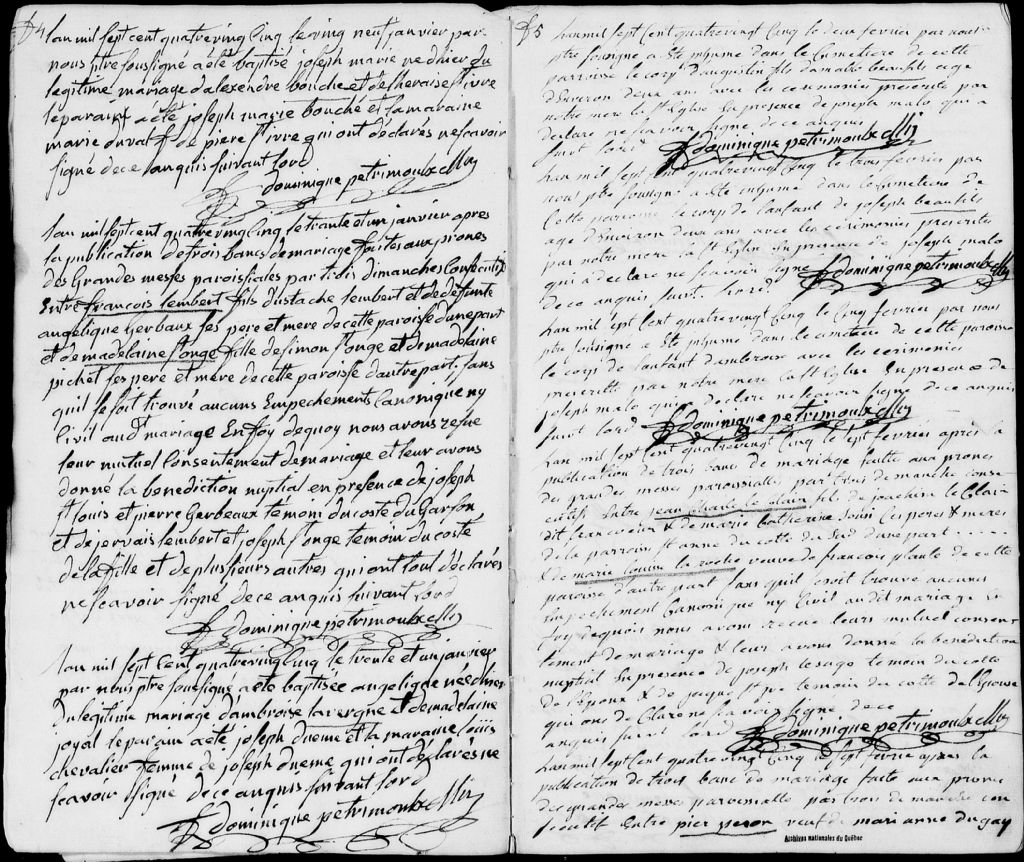 S4
lan mil sept cent quatreving Cinq le ving neuf janvier par
nous ptre sousigné a eté baptisé joseph marie né dhier du
legitime mariage dalexendre bouché et de theraise st ivre
le parain a eté joseph marie bouché et la maraine
marie duval f de piere st ivre qui ont déclarés ne scavoir
signé de ce anquis suivant lord
dominique petrimoulx Miss
lan mil sept cent quatreving Cinq le trante et un janvier apres
la publication de trois bancs de mariage faites aux prones
des Grandes messes paroisiales par trois dimanches Consecutif
Entre francois lembert fils dustache lembert et de defunte
angelique Gerbaux ses pere et mere de cette paroise dune part
et de madelaine st onge fille de simon st onge et de madelaine
pichet ses pere et mere de cette paroise dautre part, sans
quil se soit trouvé aucuns Empechement Canonique ny
Civil aud mariage En foy de quoy nous avons resue
leur mutuel Consentement de mariage et leur avons
donné la benediction nuptial en presence de joseph
st louis et pierre Gerbeaux témoins du costé du Garson
et de jervais lembert et joseph st onge temoins du costé
de la fille et de plusieurs autres qui ont tout déclarés
ne scavoir signé de ce anquis suivant lord
dominique petrimoulx Miss
lan mil sept cent quatreving Cinq le trente et un janvier
par nous ptre sousigné a eté baptisée angelique née dhier
du legitime mariage dambroise lavergne et de madelaine
joyal le parain a eté joseph dneme et la maraine louise
chevalier femme de joseph dneme qui ont declarés ne
scavoir signé de ce anquis suivant lord
dominique petrimoulx Miss
S5
Lan mil sept Cent quatrevingt Cinq le deux fevrier par nous
ptre sousigné a Ete inhume dans le Cemettere de cette
parroise le corp daugustin fils damable beaufils age
dEnviron deux ans avec les ceremonies prescrite par
notre mere la st Eglise En presence de joseph malo qui a
declare ne scavoir signe de ce anquis
suivt lord
dominique petrimoulx Miss
Lan mil sept Cent quatrevingt Cinq le trois fevrier par
nous ptre sousigne a Ete inhume dans le Cemetiere de
Cette parroise le corp de lanfant de joseph beaufils
age dEnviron deux ans avec les ceremonies prescrite
par notre mere la st Eglise En presence de joseph malo
qui a declare ne scavoir signe
de ce anquis suivt lord
dominique petrimoulx Miss
Lan mil sept Cent quatrevingt Cinq le Cinq fevrier par nous
ptre sousigne a Ete inhume dans le cemetiere de cette paroise
le corps de lanfant dambroise avec les ceremonies
prescritte par notre mere la st Eglise En presence de
joseph malo qui a declare ne scavoir signe de ce anquis
suivt lord
dominique petrimoulx Miss
Lan mil sept Cent quatrevingt Cinq le sept fevrier après la
publication de trois banc de mariage faitte aux prones
des grandes messes paroissialles par trois dimanche conse
cutifs Entre jean charle le clair fils de joachim le Clair
dit francoeur & de marie Catherine ses peres & meres
de la parroise st anne du cotte du Sud dune part . . . . .
& de marie louise la roche veuve de francois plante de cette
paroise dautre part sans quil soit trouve aucuns
Empechement Canonique ny Civil audit mariage En
foy dequois nous avons recue leurs mutuel consen
tement de mariage & leur avons donné la benediction
nuptial En presence de joseph lesage temoin du cotté
de lEpoux & de jaque temoin du cotté de lEpouse
qui ons declare ne scavoir signe de ce
anquis suivt lord
dominique petrimoulx Miss
Lan mil sept Cent quatrevingt Cinq le sept fevrier apres la
publication de trois banc de mariage faite aux prone
des grandes messes paroissialle par trois dimanche con
secutif Entre pier peron veuf de mari anne dugay
Archives nationales du Québec